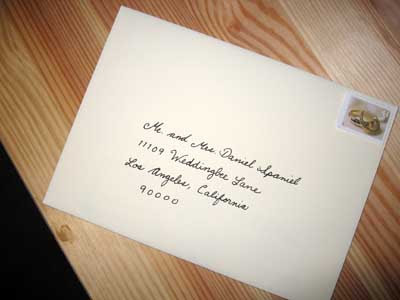 Mr. and Mrs Daniel Spaniel
11109 Weddingbee Lane
Los Angeles, California
90000